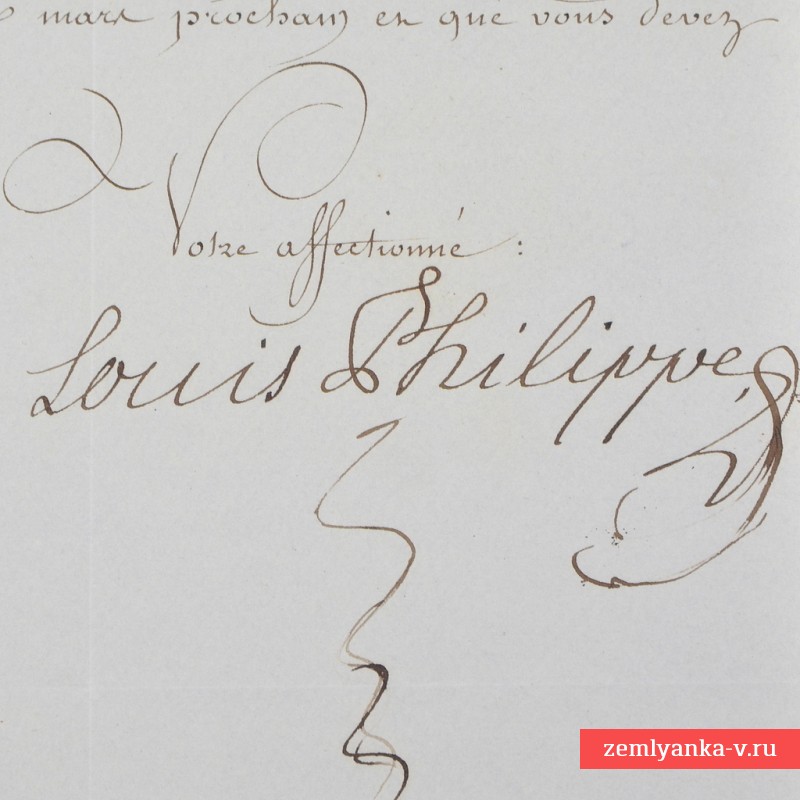 mars prochain et que vous devez
Votre affectionné :
Louis Philippe
zemlyanka-v.ru